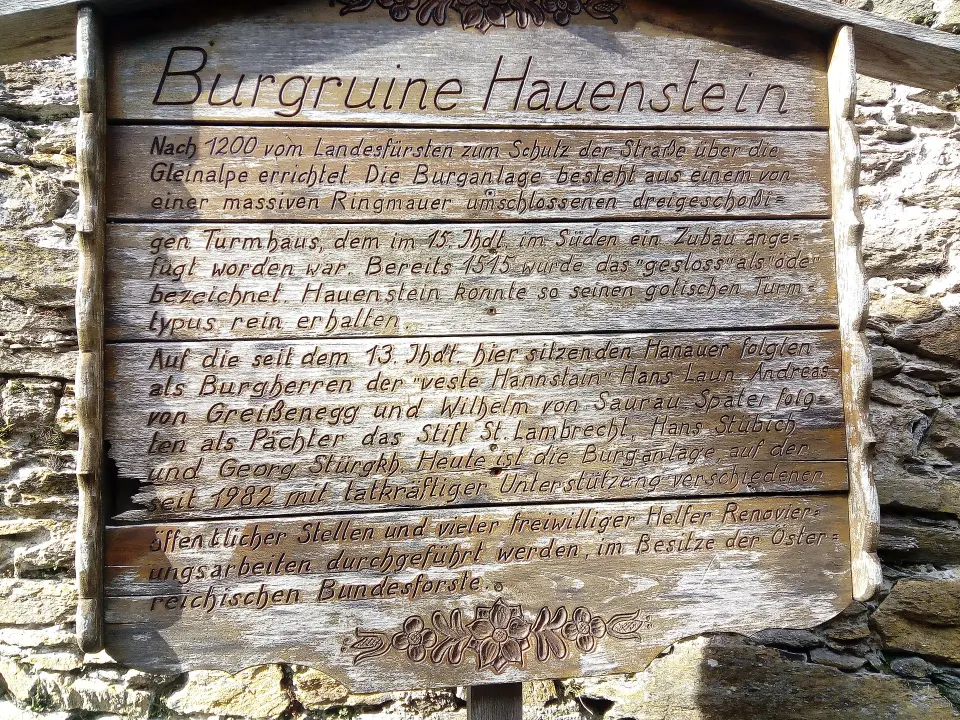 Burgruine Hauenstein
Nach 1200 vom Landesfürsten zum Schutz der Straße über die
Gleinalpe errichtet. Die Burganlage besteht aus einem von
einer massiven Ringmauer umschlossenen dreigeschoßi=
gen Turmhaus, dem im 15. Jhdt. im Süden ein Zubau ange=
fügt worden war. Bereits 1515 wurde das "gesloss" als "öde"
bezeichnet. Hauenstein konnte so seinen gotischen Turm=
typus rein erhalten.
Auf die seit dem 13. Jhdt. hier sitzenden Hanauer folgten
als Burgherren der "veste Hannstain" Hans Laun, Andreas
von Greißenegg und Wilhelm von Saurau. Später folg=
ten als Pächter das Stift St. Lambrecht, Hans Stubich
und Georg Stürgkh. Heute ist die Burganlage, auf der
seit 1982 mit tatkräftiger Unterstützung verschiedener
öffentlicher Stellen und vieler freiwilliger Helfer Renovier=
ungsarbeiten durchgeführt werden, im Besitze der Öster=
reichischen Bundesforste.